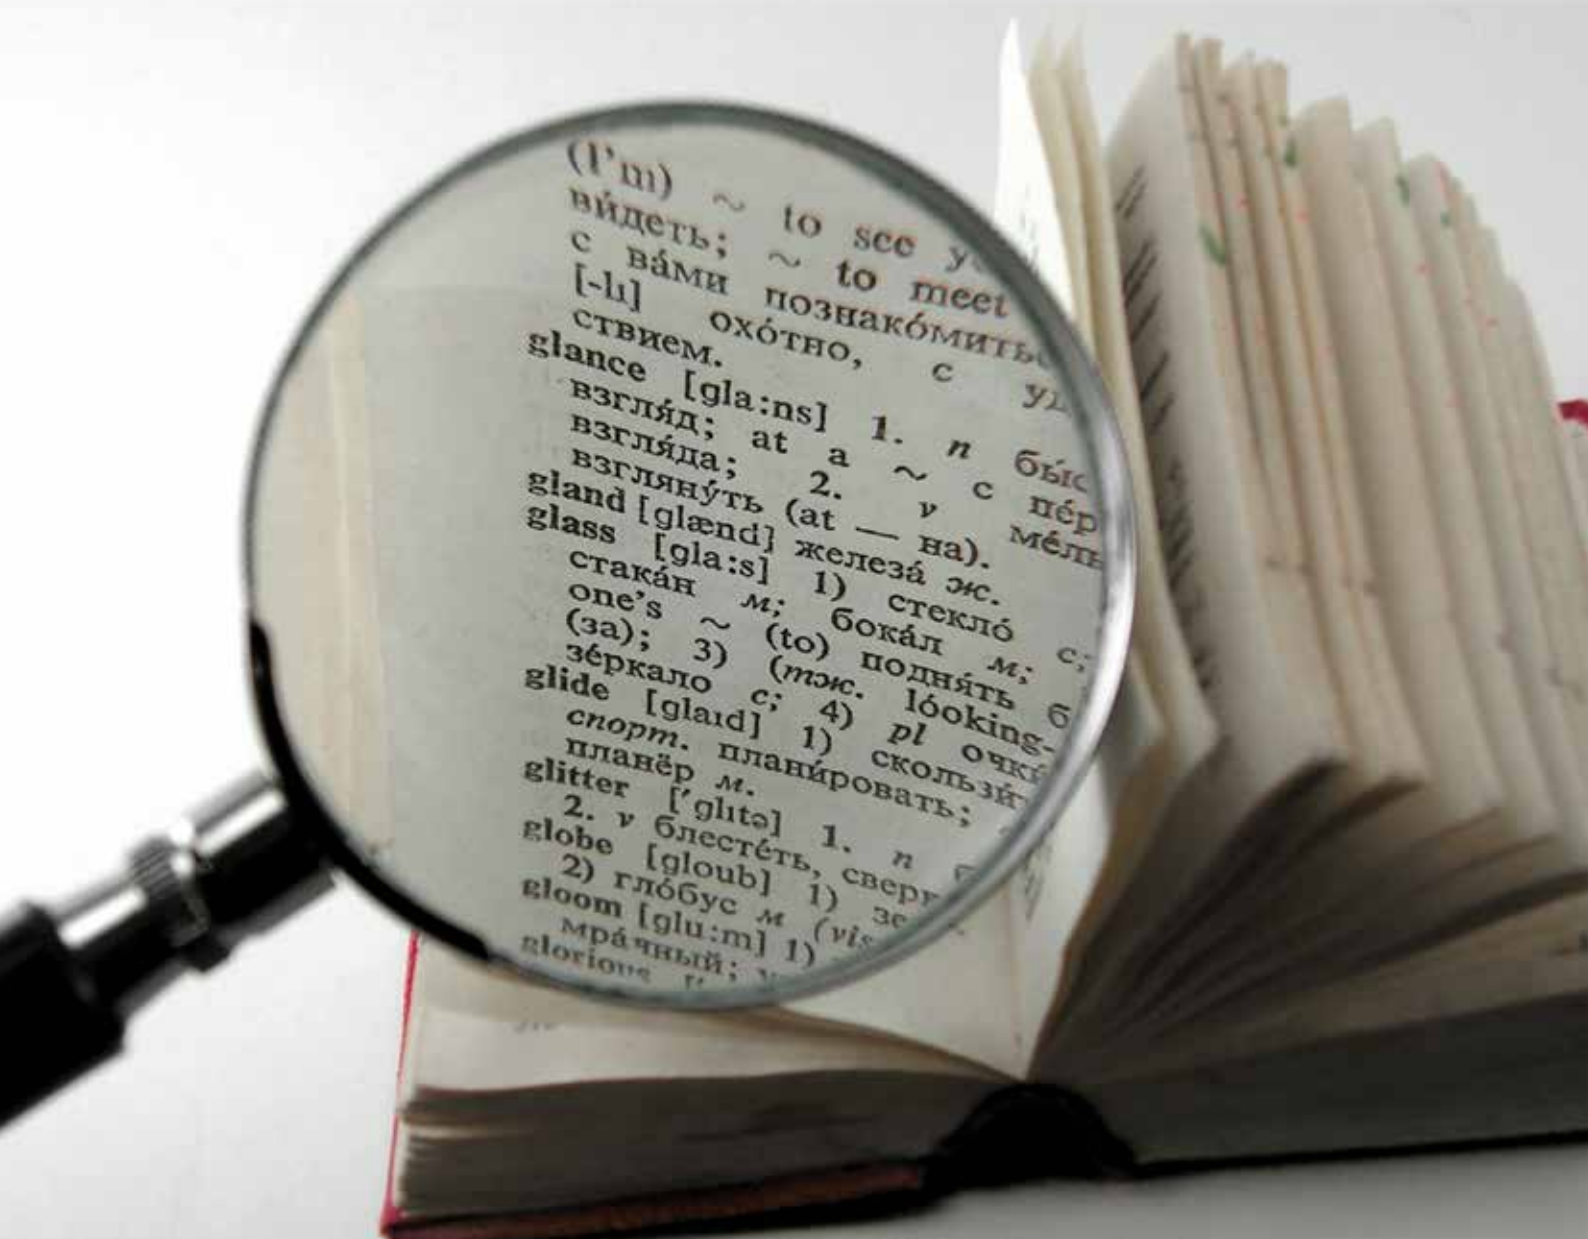 (I'm) ~ to see
ви́деть; ~ to meet
с ва́ми познако́митьс
[-lı] охо́тно, с
ствием.
glance [gla:ns] 1. n бы́с
взгля́д; at a ~ с пе́р
взгля́да; 2. v ме́ль
взгляну́ть (at — на).
gland [glænd] железа́ ж.
glass [gla:s] 1) стекло́ с;
стака́н м; бока́л м;
one's ~ (to) подня́ть б
(за); 3) (тж. lóoking-
зе́ркало с; 4) pl очки́
glide [glaıd] 1) скользи́т
спорт. плани́ровать;
планёр м.
glitter ['glıtə] 1. n
2. v блесте́ть, сверк
globe [gloub] 1) зе
2) гло́бус м (vis
gloom [glu:m] 1)
мра́чный;
glorious